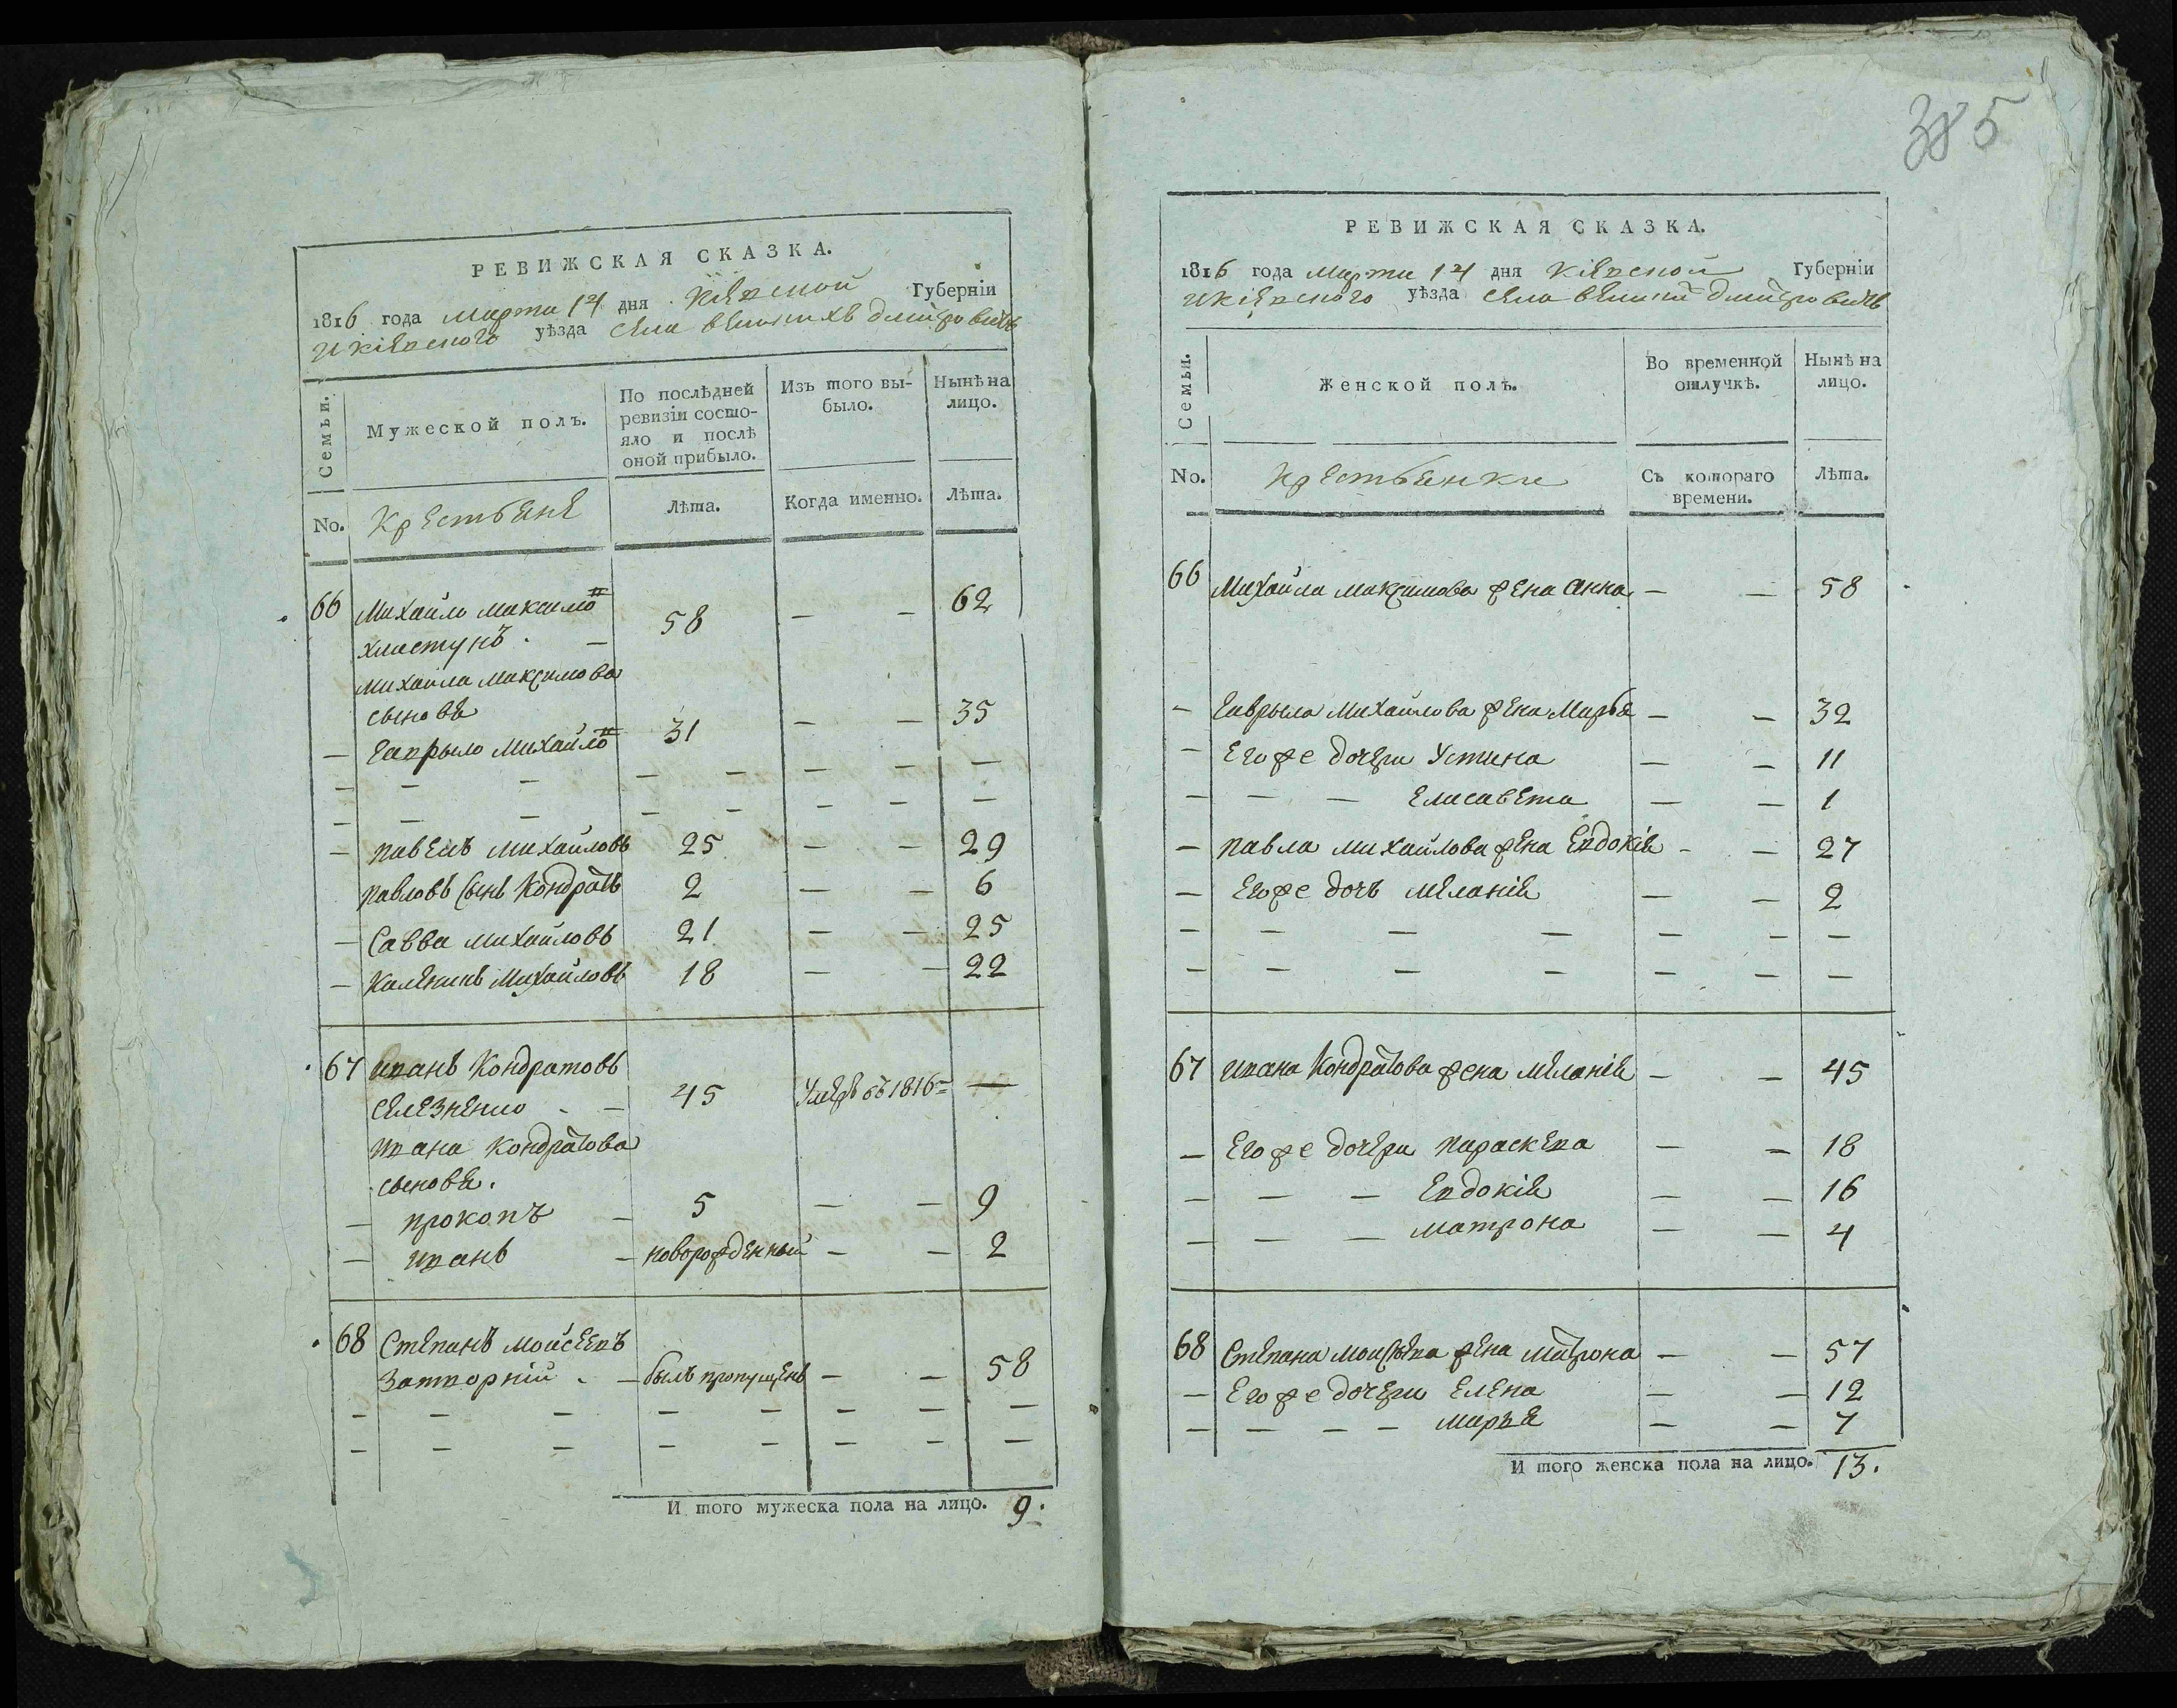 385
РЕВИЖСКАЯ СКАЗКА.
1816 года марта 14 дня Кіевской Губерніи
и кіевского уѣзда села великихъ дмитровичъ
Семьи.
Мужеской полъ.
По послѣдней ревизіи состо-
яло и послѣ
оной прибыло.
Изъ того вы-
было.
Нынѣ на
лицо.
No.
Крестьяне
Лѣта.
Когда именно.
Лѣта.
66 Михайло максимо
хластунъ. — 58 — — 62
михаила максимова
сыновья
— Гаврыло михайло 31 — — 35
— — — — — — — —
— — — — — — — —
— павелъ михайловъ 25 — — 29
павловъ сынъ Кондратъ 2 — — 6
— Савва михайловъ 21 — — 25
— Каленикъ михайловъ 18 — — 22
67 иванъ Кондратовъ
селезненко - — 45 умеръ въ 1816 —
ивана кондратова
сыновья.
— прокопъ — 5 — — 9
— иванъ — новорожденный — — 2
68 Степанъ мойсеевъ
Затворній - — былъ пропущенъ — — 58
— — — — — — — —
— — — — — — — —
И того мужеска пола на лицо. 9.
РЕВИЖСКАЯ СКАЗКА.
1816 года марта 14 дня кіевской Губерніи
и кіевского уѣзда села великихъ дмитровичъ
Семьи.
Женской полъ.
Во временной
отлучкѣ.
Нынѣ на
лицо.
No.
крестьянки
Съ котораго
времени.
Лѣта.
66 михайла максимова жена анна — — 58
— Гаврыла михайлова жена марья — — 32
— Его же дочери Устина — — 11
— — — Елисавета — — 1
— павла михайлова жена Евдокія - — 27
— Его же дочъ меланія — — 2
— — — — — — —
— — — — — — —
67 ивана Кондратова жена меланія — — 45
— Его же дочери параскева — — 18
— — — Евдокія — — 16
— — — матрона — — 4
68 Степана моисѣева жена матрона — — 57
— Его же дочери Елена — — 12
— — — — марья — — 7
И того женска пола на лицо. 13.